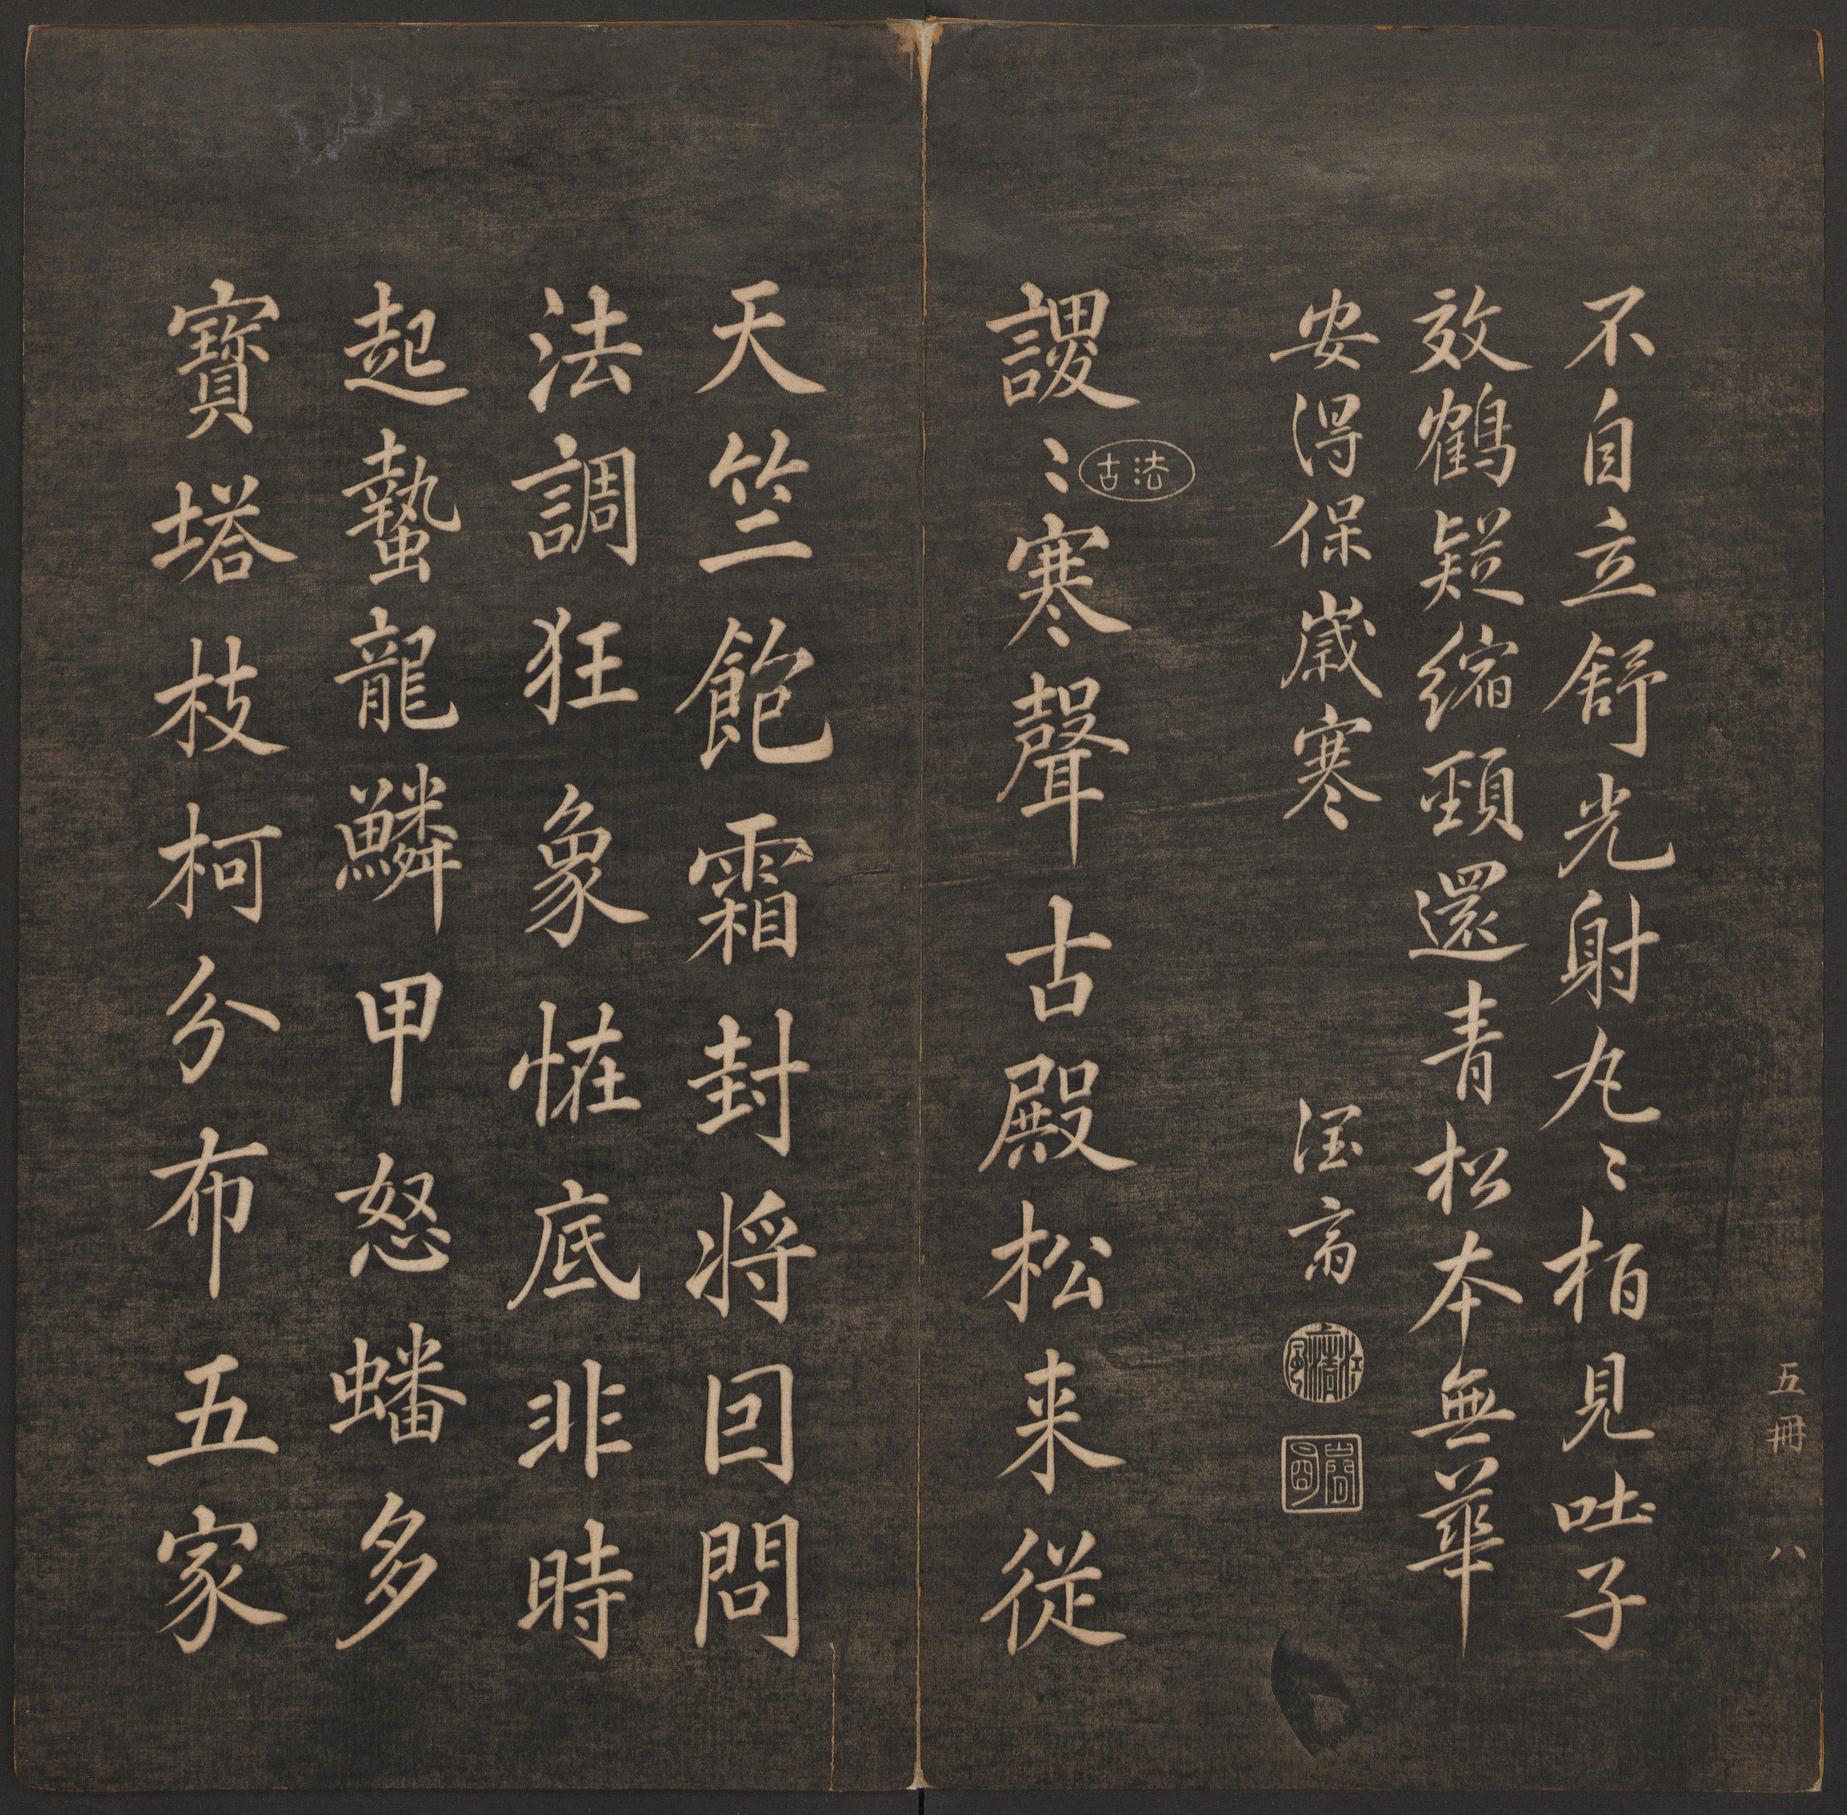 五冊 八
不自立舒光射丸〻栢見吐子
效鶴疑縮頸還青松本無華
安得保歳寒
溼斎
謖〻寒聲古殿松来從
法古
天竺飽霜封将囙問
法調狂象恠底非時
起蟄龍鱗甲怒蟠多
寶塔枝柯分布五家